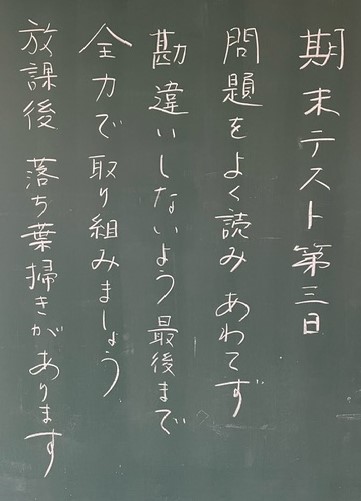 期末テスト第三日
問題をよく読み あわてず
勘違いしないよう最後まで
全力で取り組みましょう
放課後 落ち葉掃きがあります